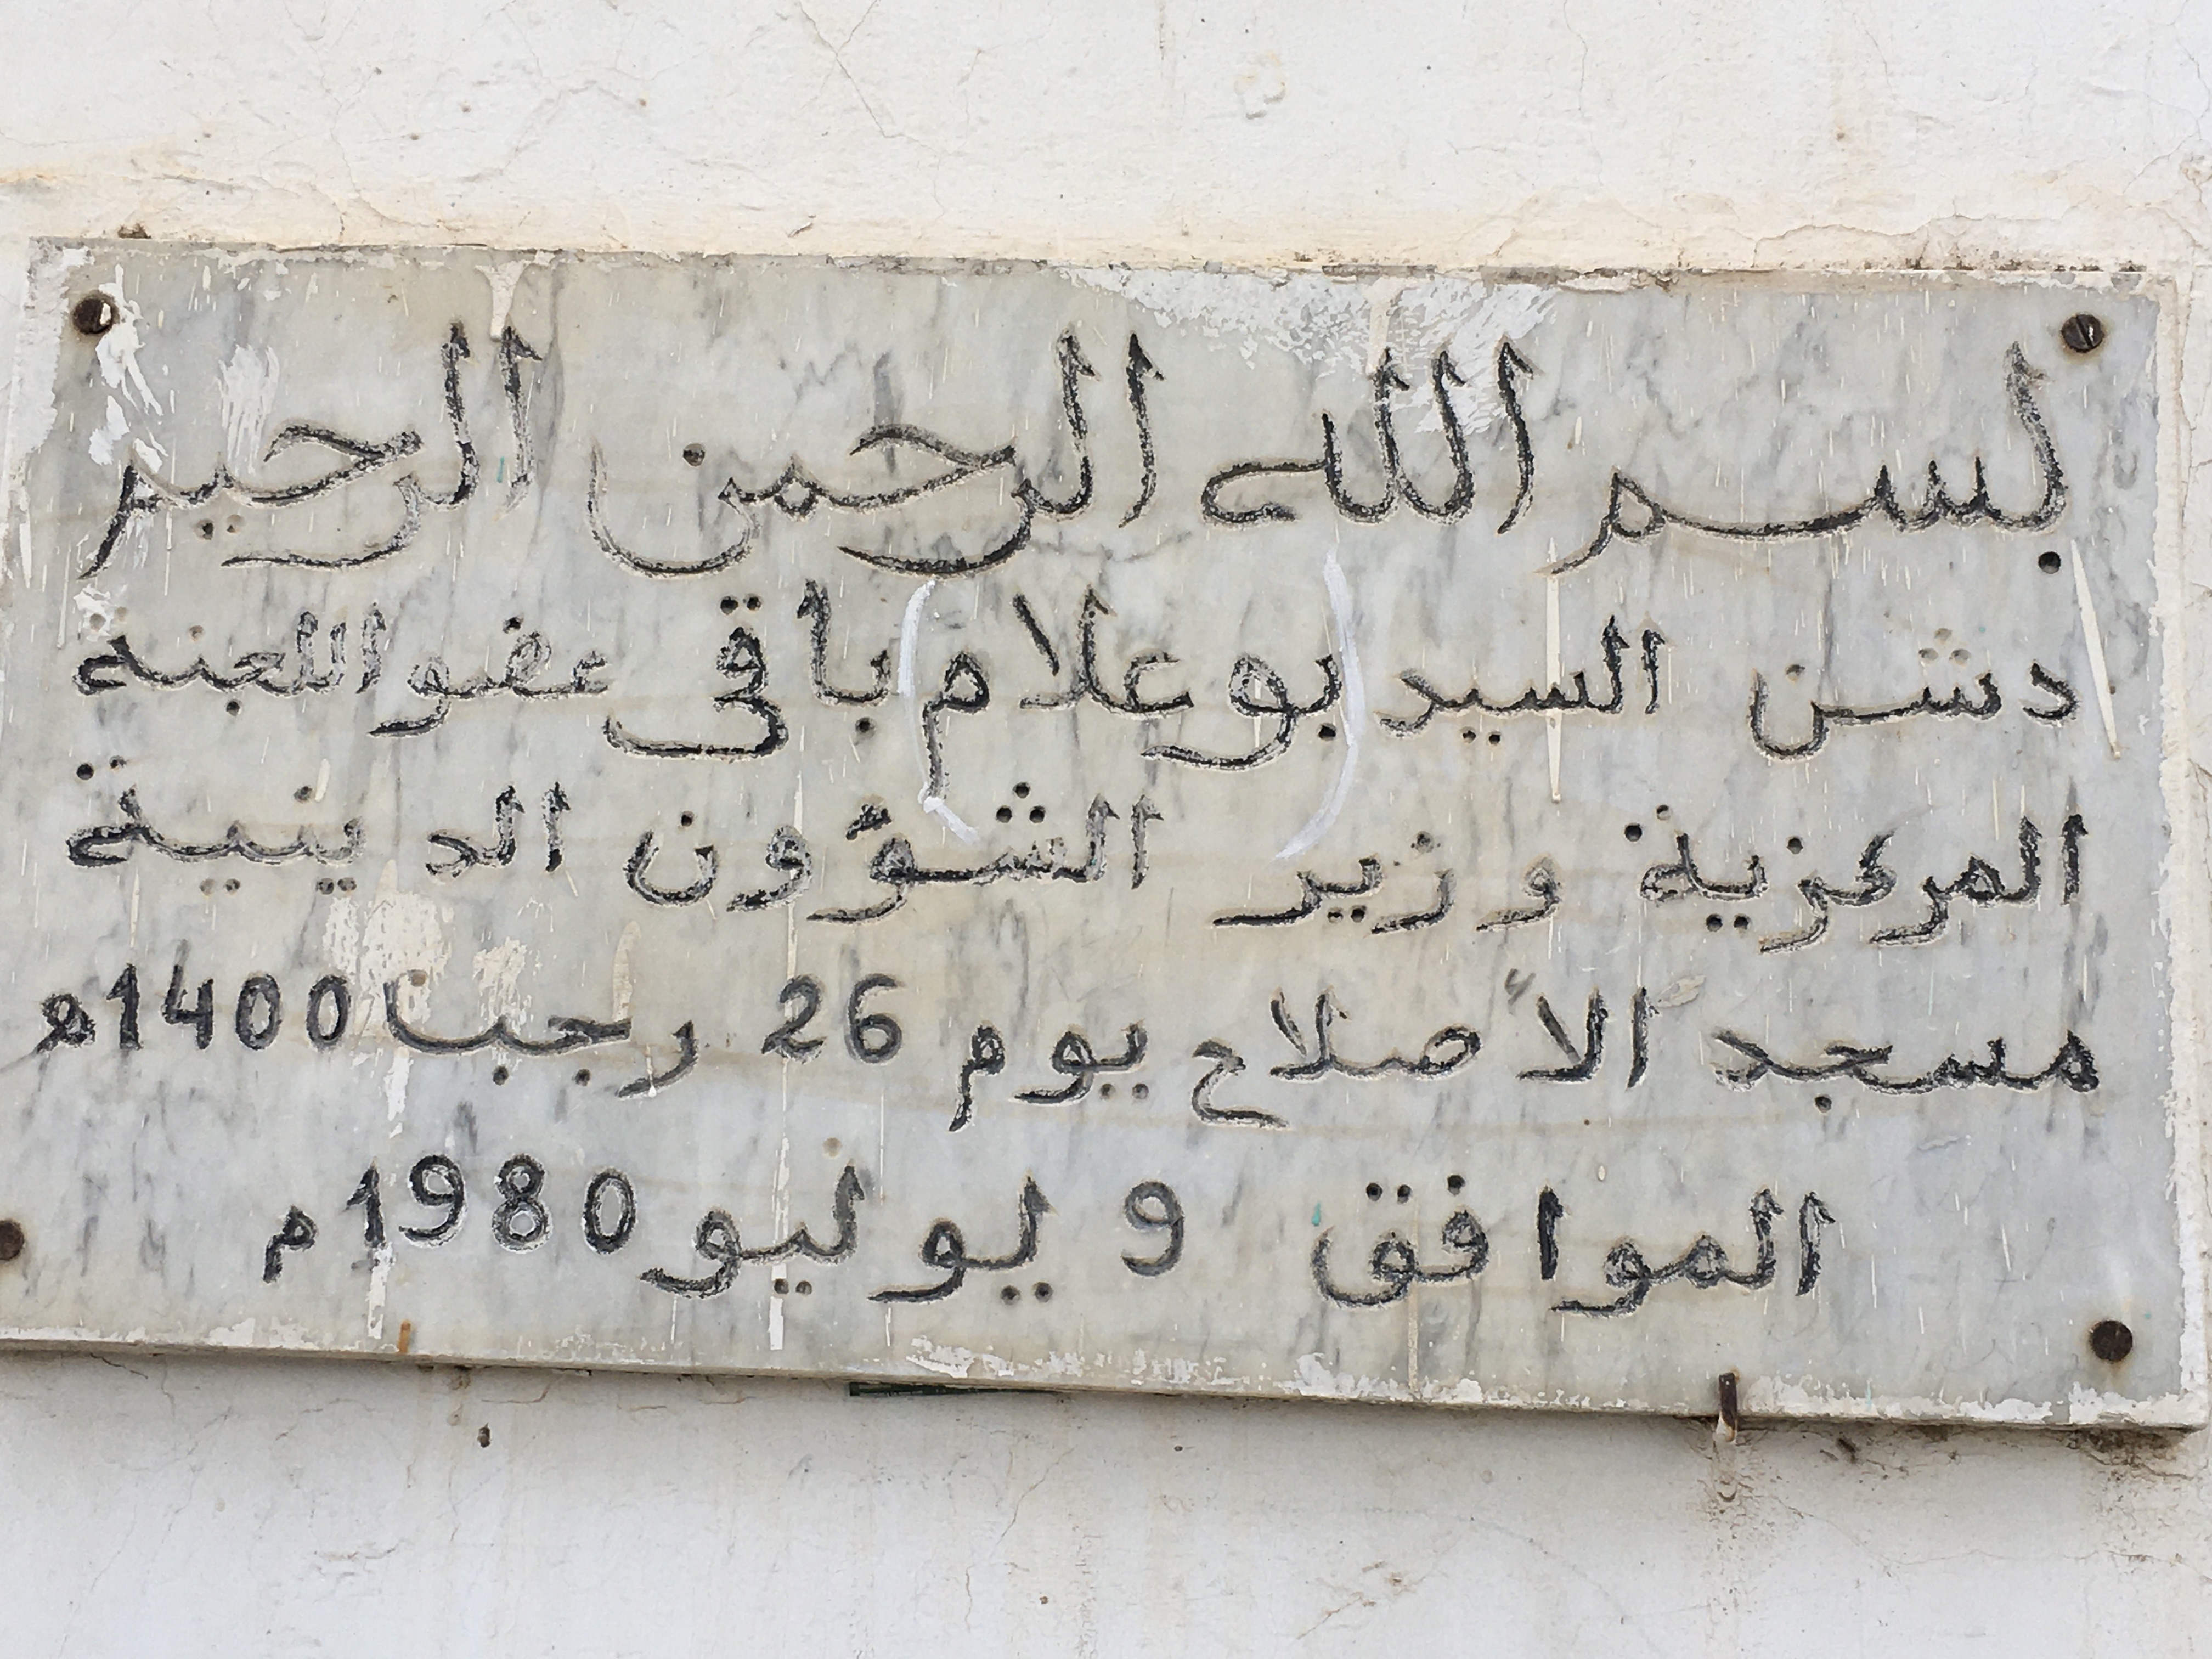 بسم الله الرحمن الرحيم
دشن السيد (بو علام) باقي عضو اللجنة
المركزية وزير الشؤون الدينية
مسجد الأصلاح يوم 26 رجب 1400ه
الموافق 9 يوليو 1980م